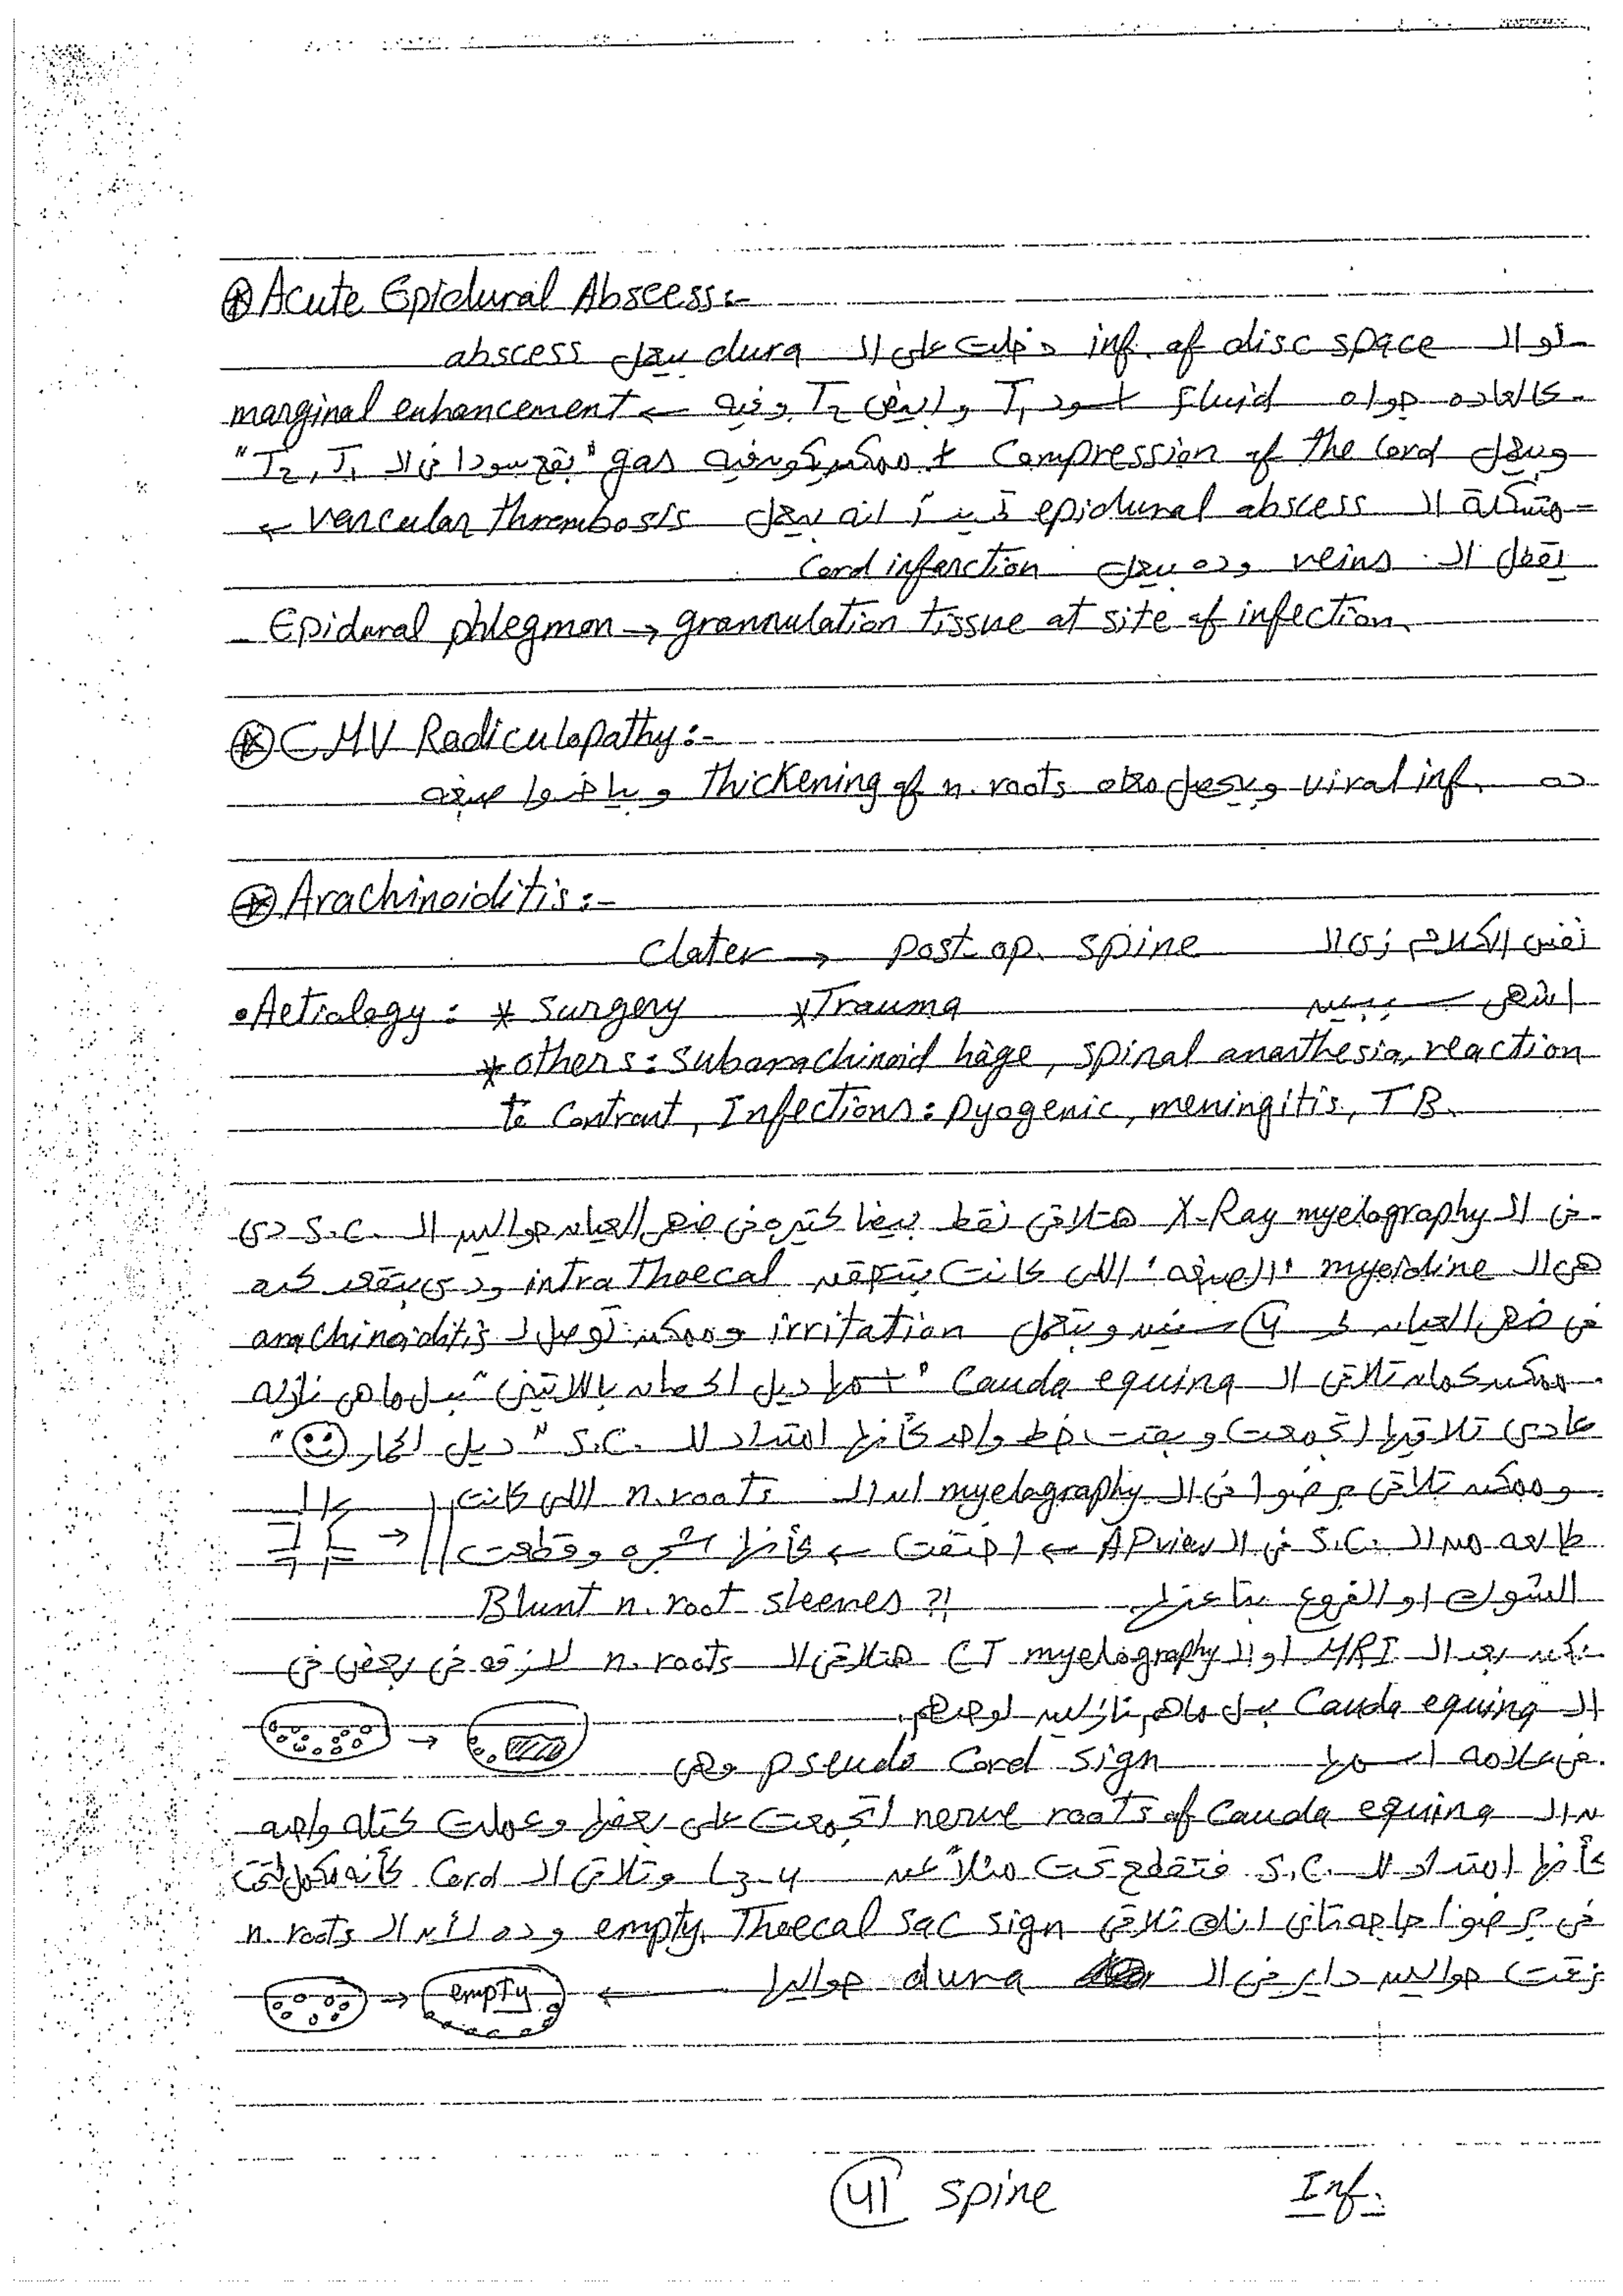 ⊛ Acute Epidural Abscess:-
لو الـ inf. of disc space دخلت على الـ dura بيعمل abscess
كالعاده جواه fluid اسود T₁ وابيض T₂ وفيه ← marginal enhancement
وبيعمل Compression of the Cord + ممكن يكون فيه gas "بقع سودا فى الـ T₁, T₂"
ومشكلة الـ epidural abscess انه بيعمل vascular thrombosis ←
يقفل الـ veins وده بيعمل Cord infarction
- Epidural phlegmon → grannulation tissue at site of infection.
⊛ CMV Radiculopathy:-
ده viral inf. وبيحصل معاه thickening of n. roots وبياخدوا صبغه
⊛ Arachinoiditis:-
نفس الكلام زى الـ post op. spine → Clater
• Aetiology: * Surgery *Trauma
* others: subarachinoid häge, spinal anaethesia, reaction
to Contrast, Infections: pyogenic, meningitis, TB.
فى الـ X-Ray myelography هتلاقى نقط بيضا كتيره فى ضهر العيان حوالين الـ S.C. دى
هى الـ myoidine "الصبغه" اللى كانت بتتحقن intra thoecal ودى بتقعد كده
فى ضهر العيان لـ 4 سنين وبتعمل irritation وممكن توصل لـ arachinoiditis
ممكن كمان تلاقى الـ Cauda equina "اسمها ديل الحصان بالاتينى" بدل ماهى نازله
عادى تلاقيها اتجمعت وبقت خط واحد كأنها امتداد للـ S.C. "ديل الحمار ☺"
وممكن تلاقى برضوا فى الـ myelography ان الـ n. roots اللى كانت
طالعه من الـ S.C. فى الـ AP view ← اختفت ← كأنها شجره وقطعت
الشوك او الفروع بتاعتها Blunt n. root sleeves ?!
بعد الـ MRI او الـ CT myelography هتلاقى الـ n. roots لازقه فى بعض فى
الـ Cauda equina بدل ماهم نازلين لوحدهم.
فى علامه اسمها pseudo Cord sign وهى
ان الـ nerve roots of Cauda equina اتجمعت على بعضها وعملت كتله واحده
كأنها امتداد للـ S.C. فتقطع تحت مثلاً عند L3-4 وتلاقى الـ Cord كأنه مكمل لتحت
فى برضوا حاجه تانى انك تلاقى empty Thoecal sac sign وده لأن الـ n. roots
لزقت حوالين داير فى الـ dura حواليها ←
empty
41 spine Inf.